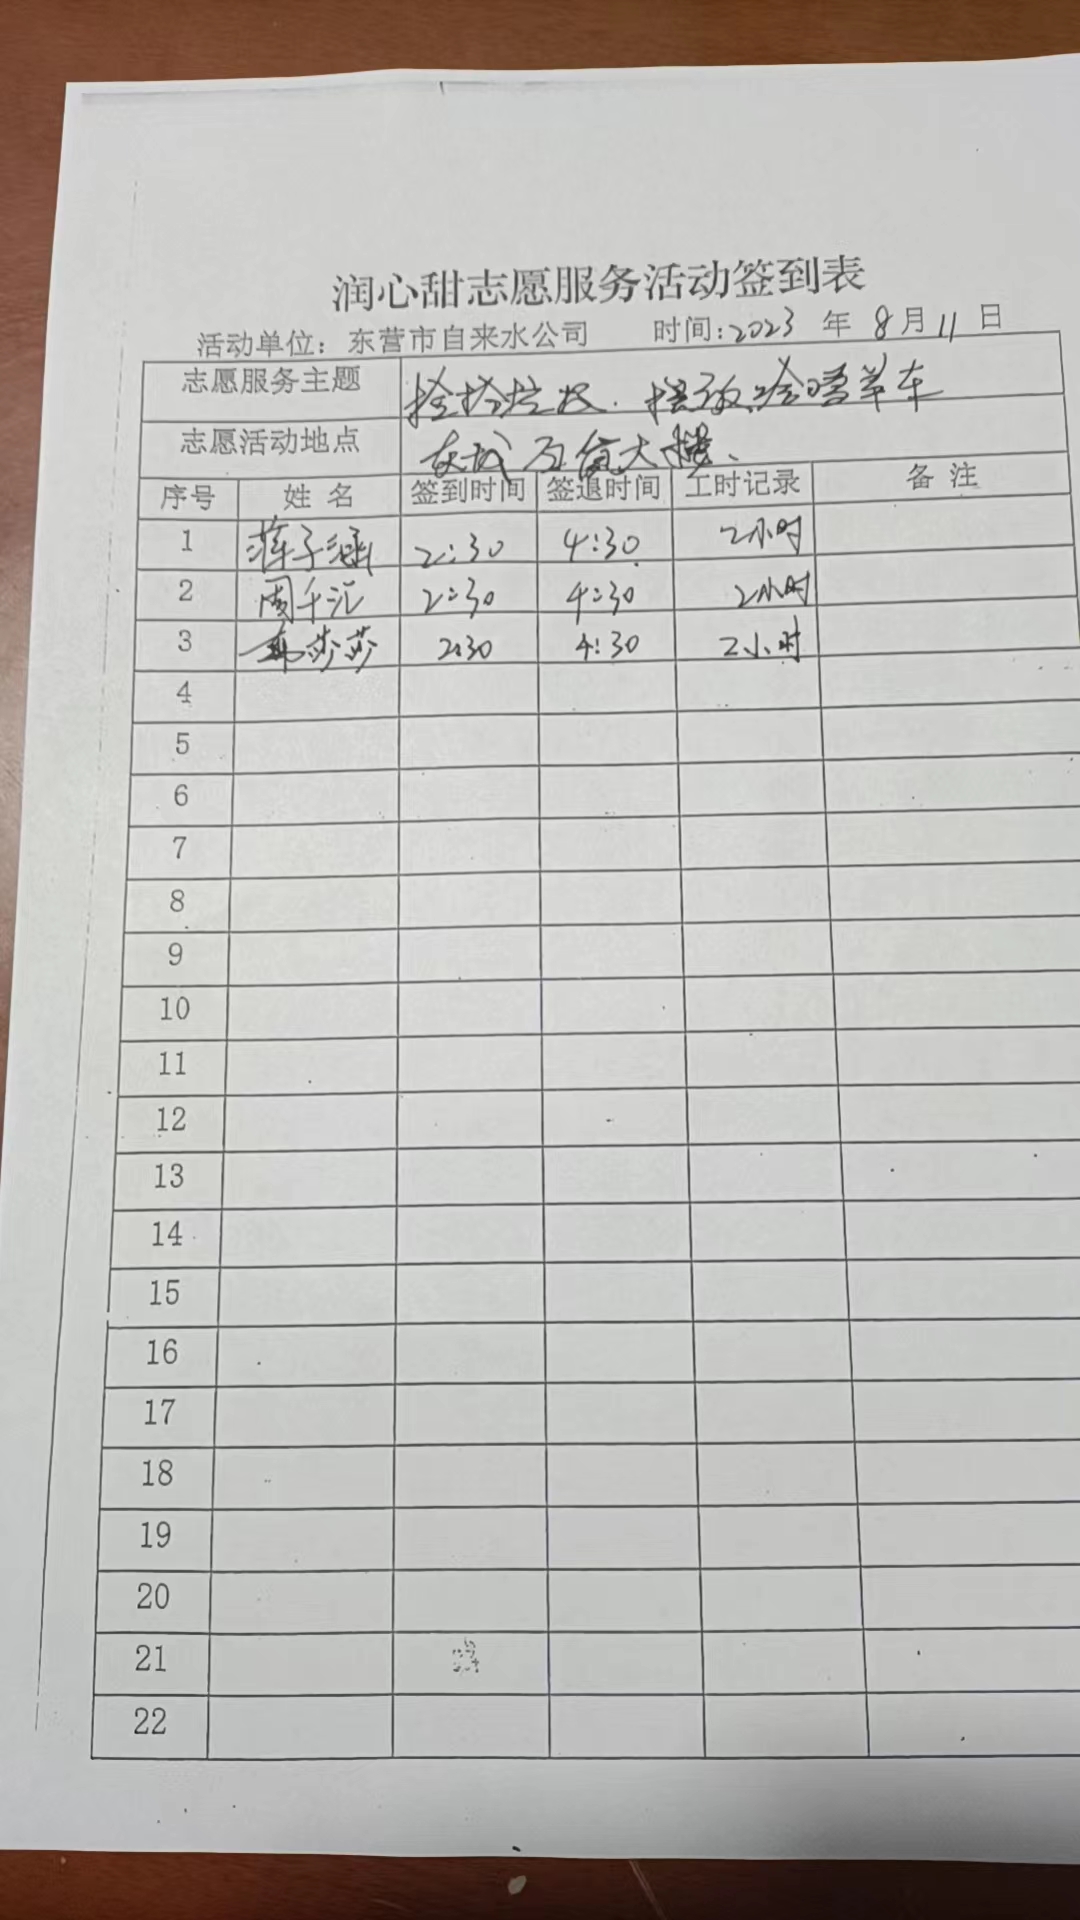 润心甜志愿服务活动签到表
活动单位：东营市自来水公司 时间:2023 年 8月11日
志愿服务主题 捡拾垃圾、摆放共享单车
志愿活动地点 东城 大楼、
序号 姓名 签到时间 签退时间 工时记录 备注
1 蒋子涵 2:30 4:30 2小时
2 周千汇 2:30 4:30 2小时
3 莎莎 2:30 4:30 2小时
4
5
6
7
8
9
10
11
12
13
14
15
16
17
18
19
20
21
22